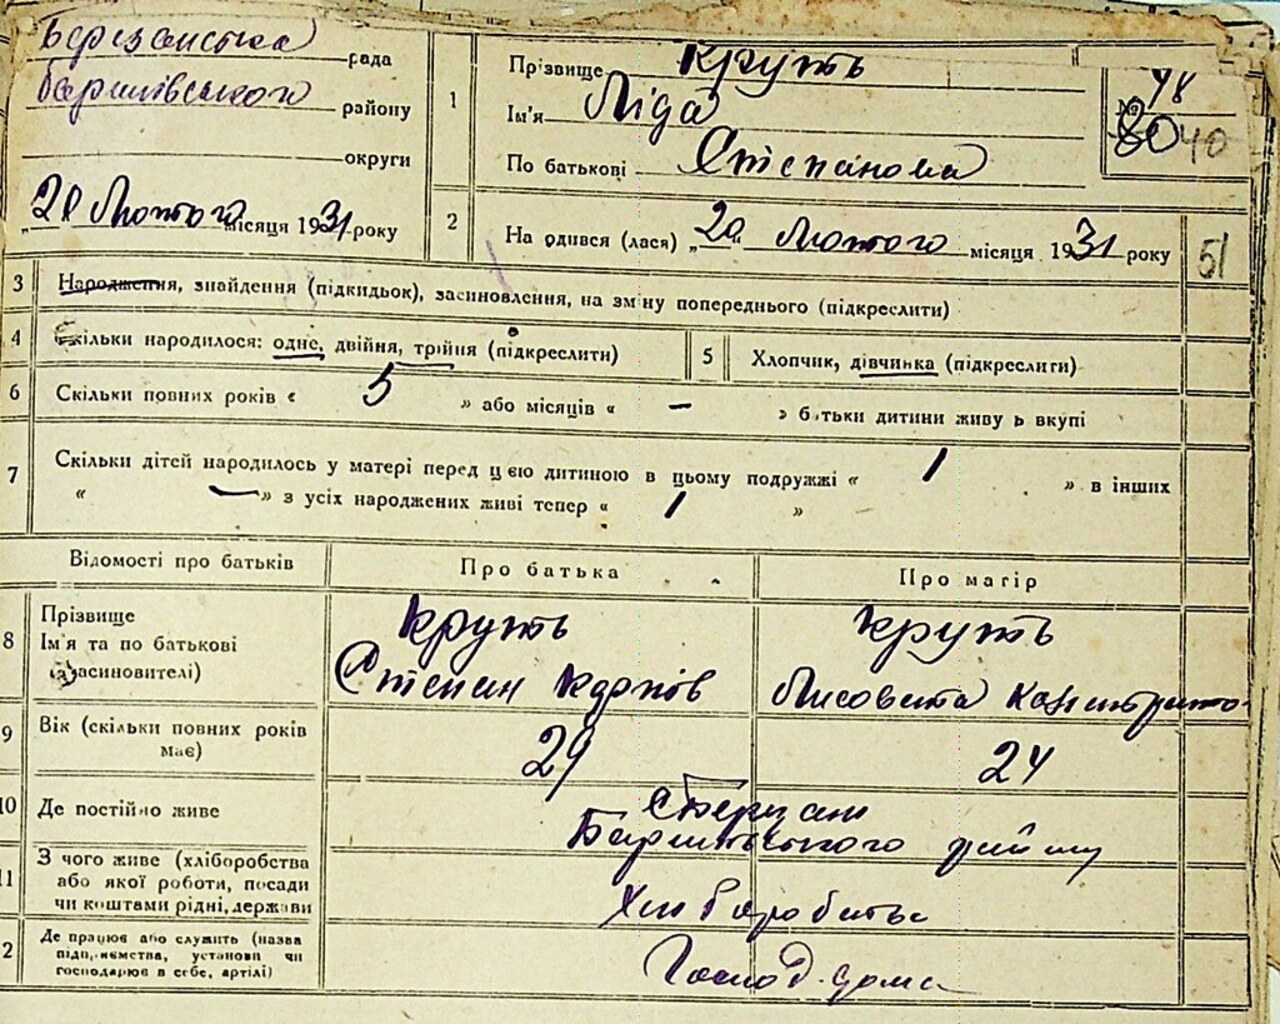 Березанська рада
Баришівського району
округи
„21 Лютого місяця 1931 року
1
Прізвище Круть
Ім'я Ліда
По батькові Степанова
№ 48
80 40
2
На одився (лася) „20“ Лютого місяця 1931 року
51
3 Народження, знайдення (підкидьок), засиновлення, на зм ну попереднього (підкреслити)
4 Скільки народилося: одне, двійня, трійня (підкреслити)
5 Хлопчик, дівчинка (підкреслити)
6 Скільки повних років « 5 » або місяців « – » батьки дитини живу ь вкупі
7 Скільки дітей народилось у матері перед цією дитиною в цьому подружжі « 1 » в інших
« — » з усіх народжених живі тепер « 1 »
Відомості про батьків
Про батька
Про матір
8 Прізвище
Ім'я та по батькові
(засиновителі)
Круть
Степан Карпів
Круть
Лисовета
9 Вік (скільки повних років
має)
29
24
10 Де постійно живе
Баришівського району
11 З чого живе (хліборобства
або якої роботи, посади
чи коштами рідні, держави
Хліборобство
12 Де працює або служить (назва
підприємства, установи чи
господарює в себе, артілі)
Господ. дома